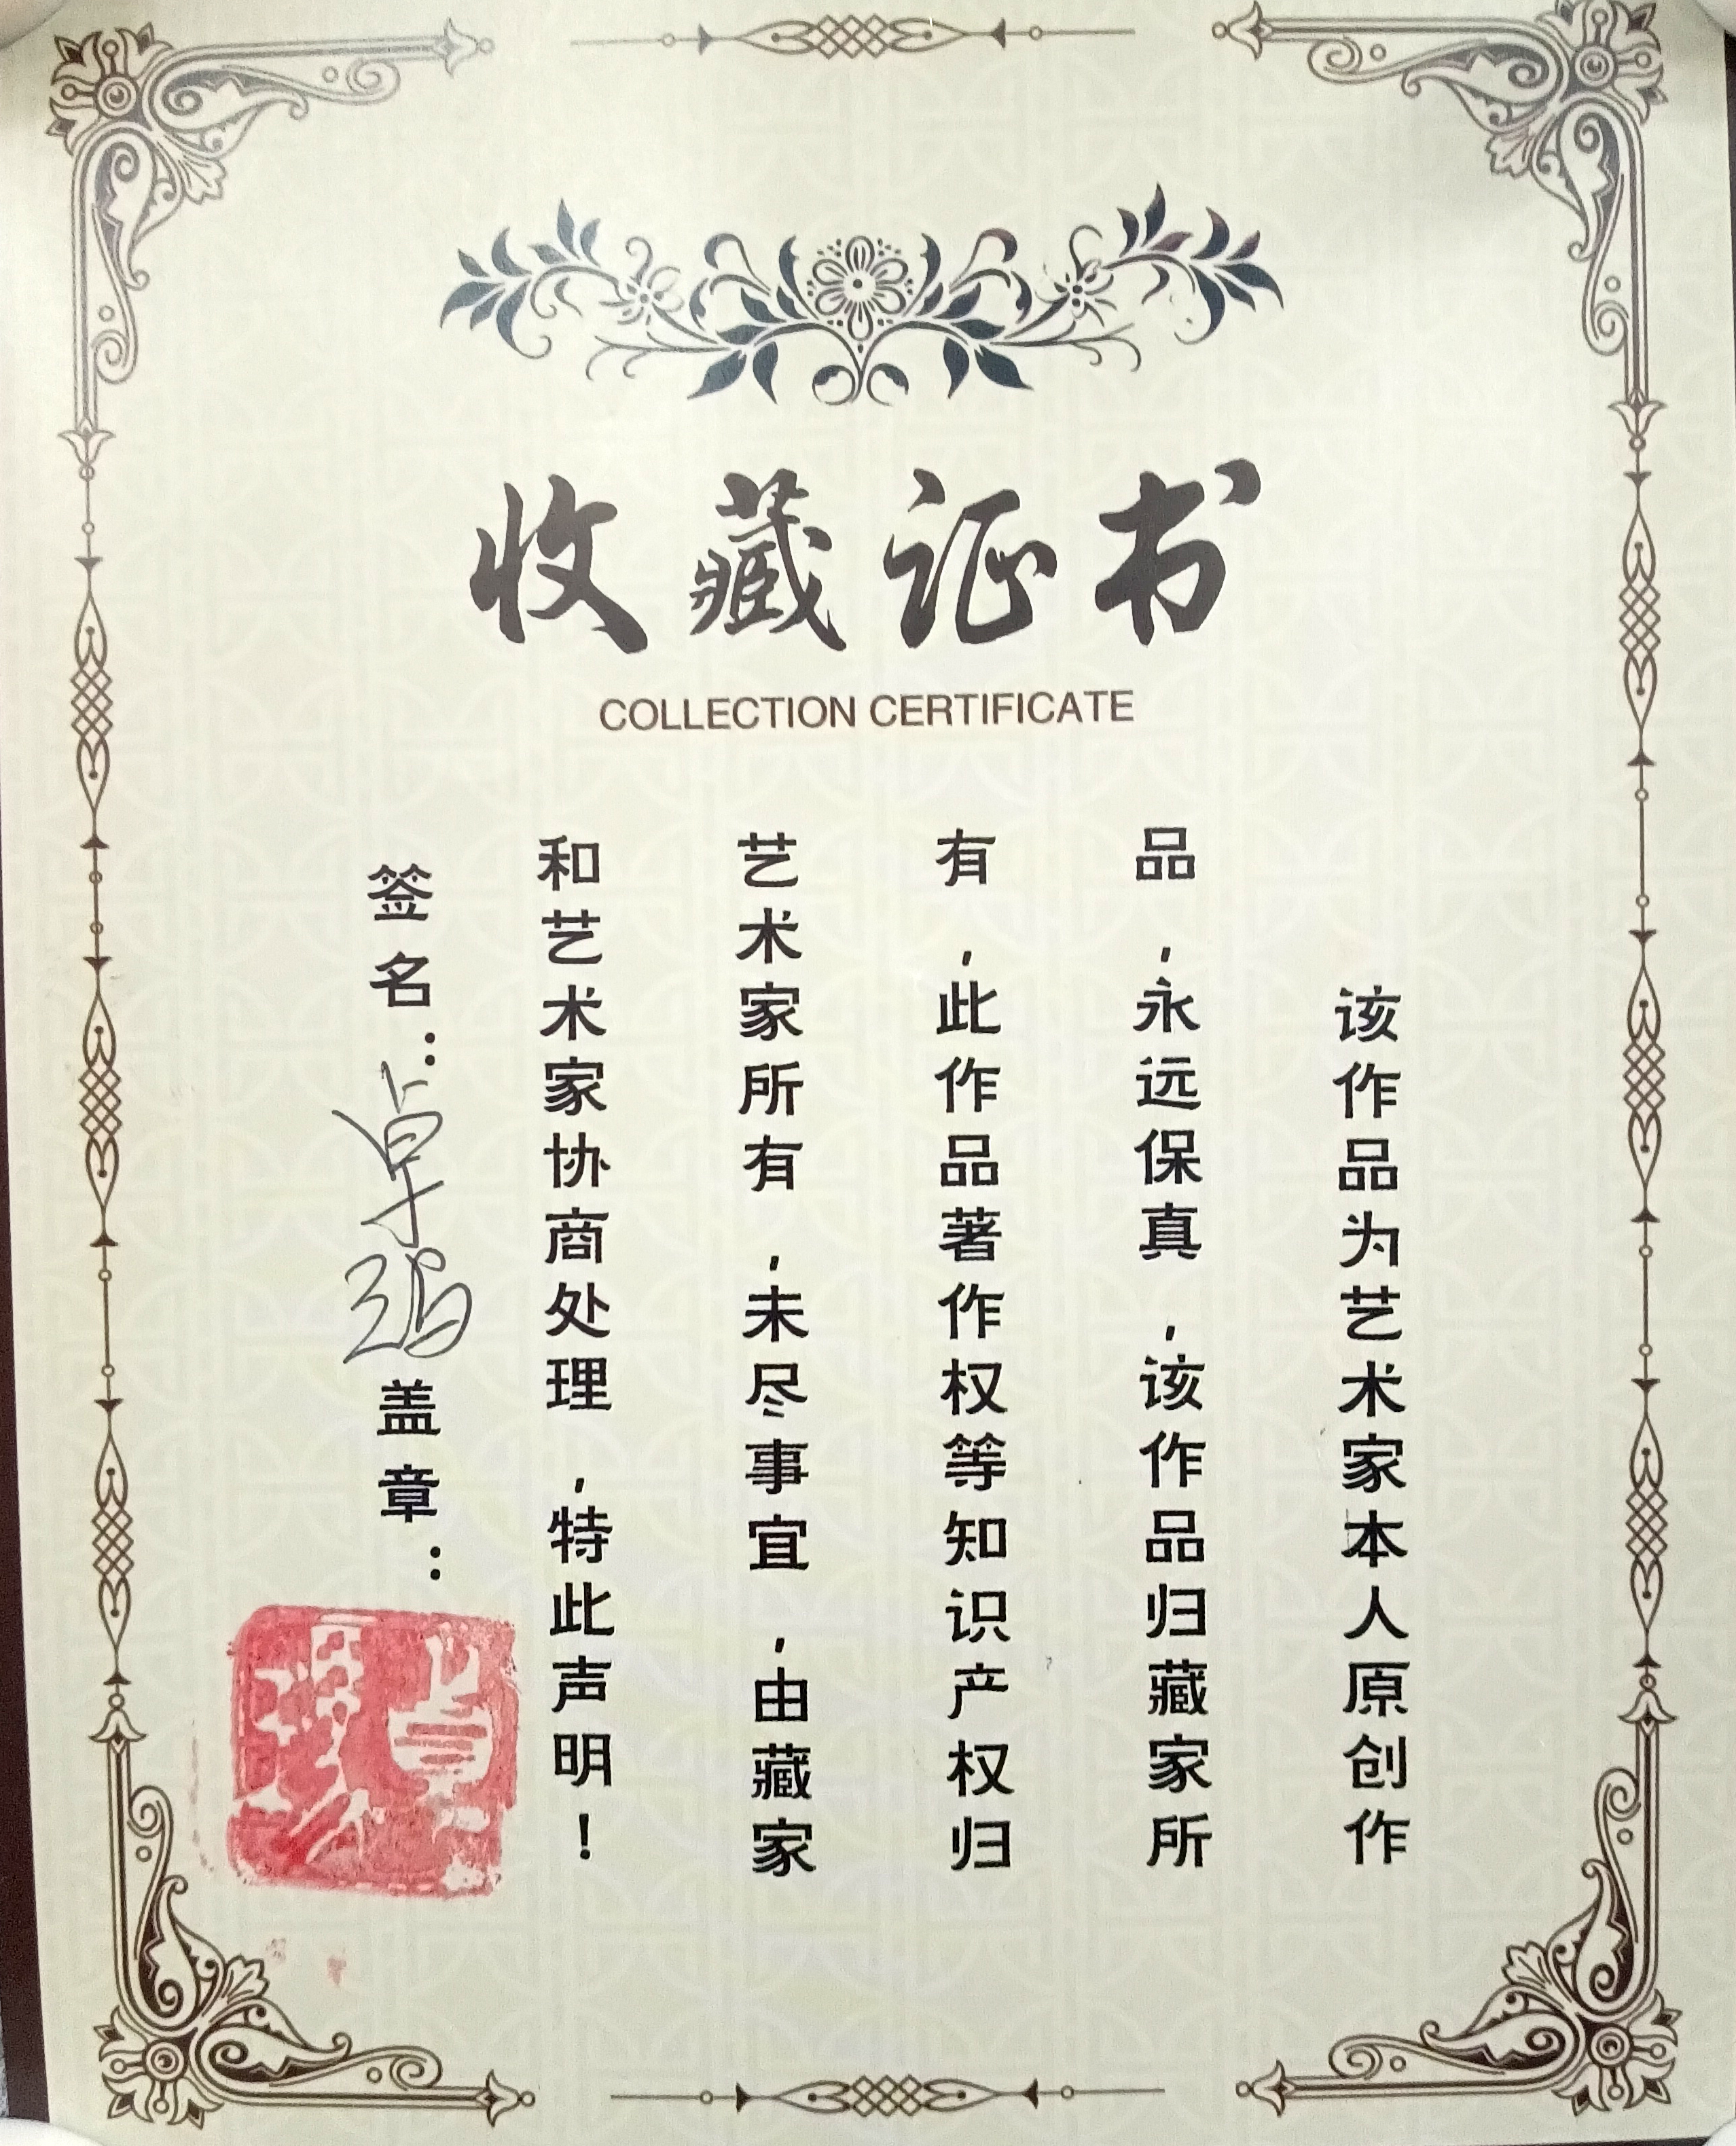 收藏证书
COLLECTION CERTIFICATE
该作品为艺术家本人原创作
品,永远保真,该作品归藏家所
有,此作品著作权等知识产权归
艺术家所有,未尽事宜,由藏家
和艺术家协商处理,特此声明!
签名:卓强盖章: